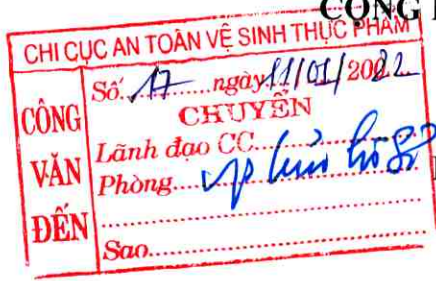 CỘNG
CHI CỤC AN TOÀN VỆ SINH THỰC PHẨM
CÔNG VĂN ĐẾN
Số: 17 ngày 11/01/2022
CHUYỂN
Lãnh đạo CC
Phòng VP lưu hồ sơ
Sao